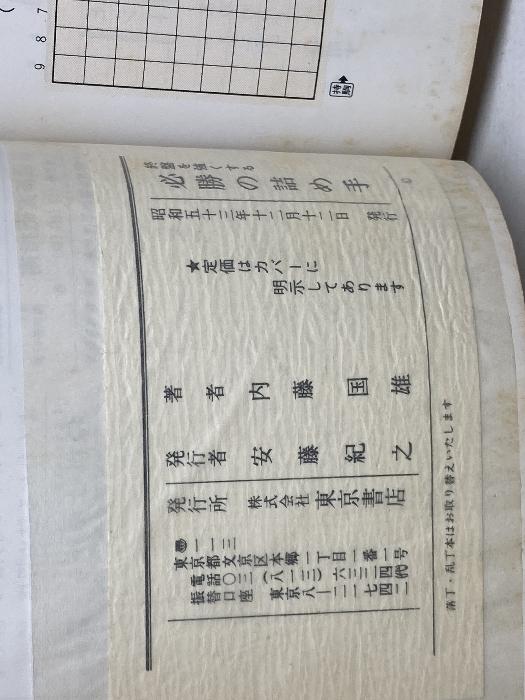 7
8
9
持駒
終盤を強くする
必勝の詰め手
昭和五十三年十二月十二日　発行
★定価はカバーに
明示してあります
著者　内藤国雄
発行者　安藤紀之
発行所　株式会社　東京書店
〒一一三
東京都文京区本郷一丁目一番一号
電話〇三
振替口座
落丁・乱丁本はお取り替えいたします